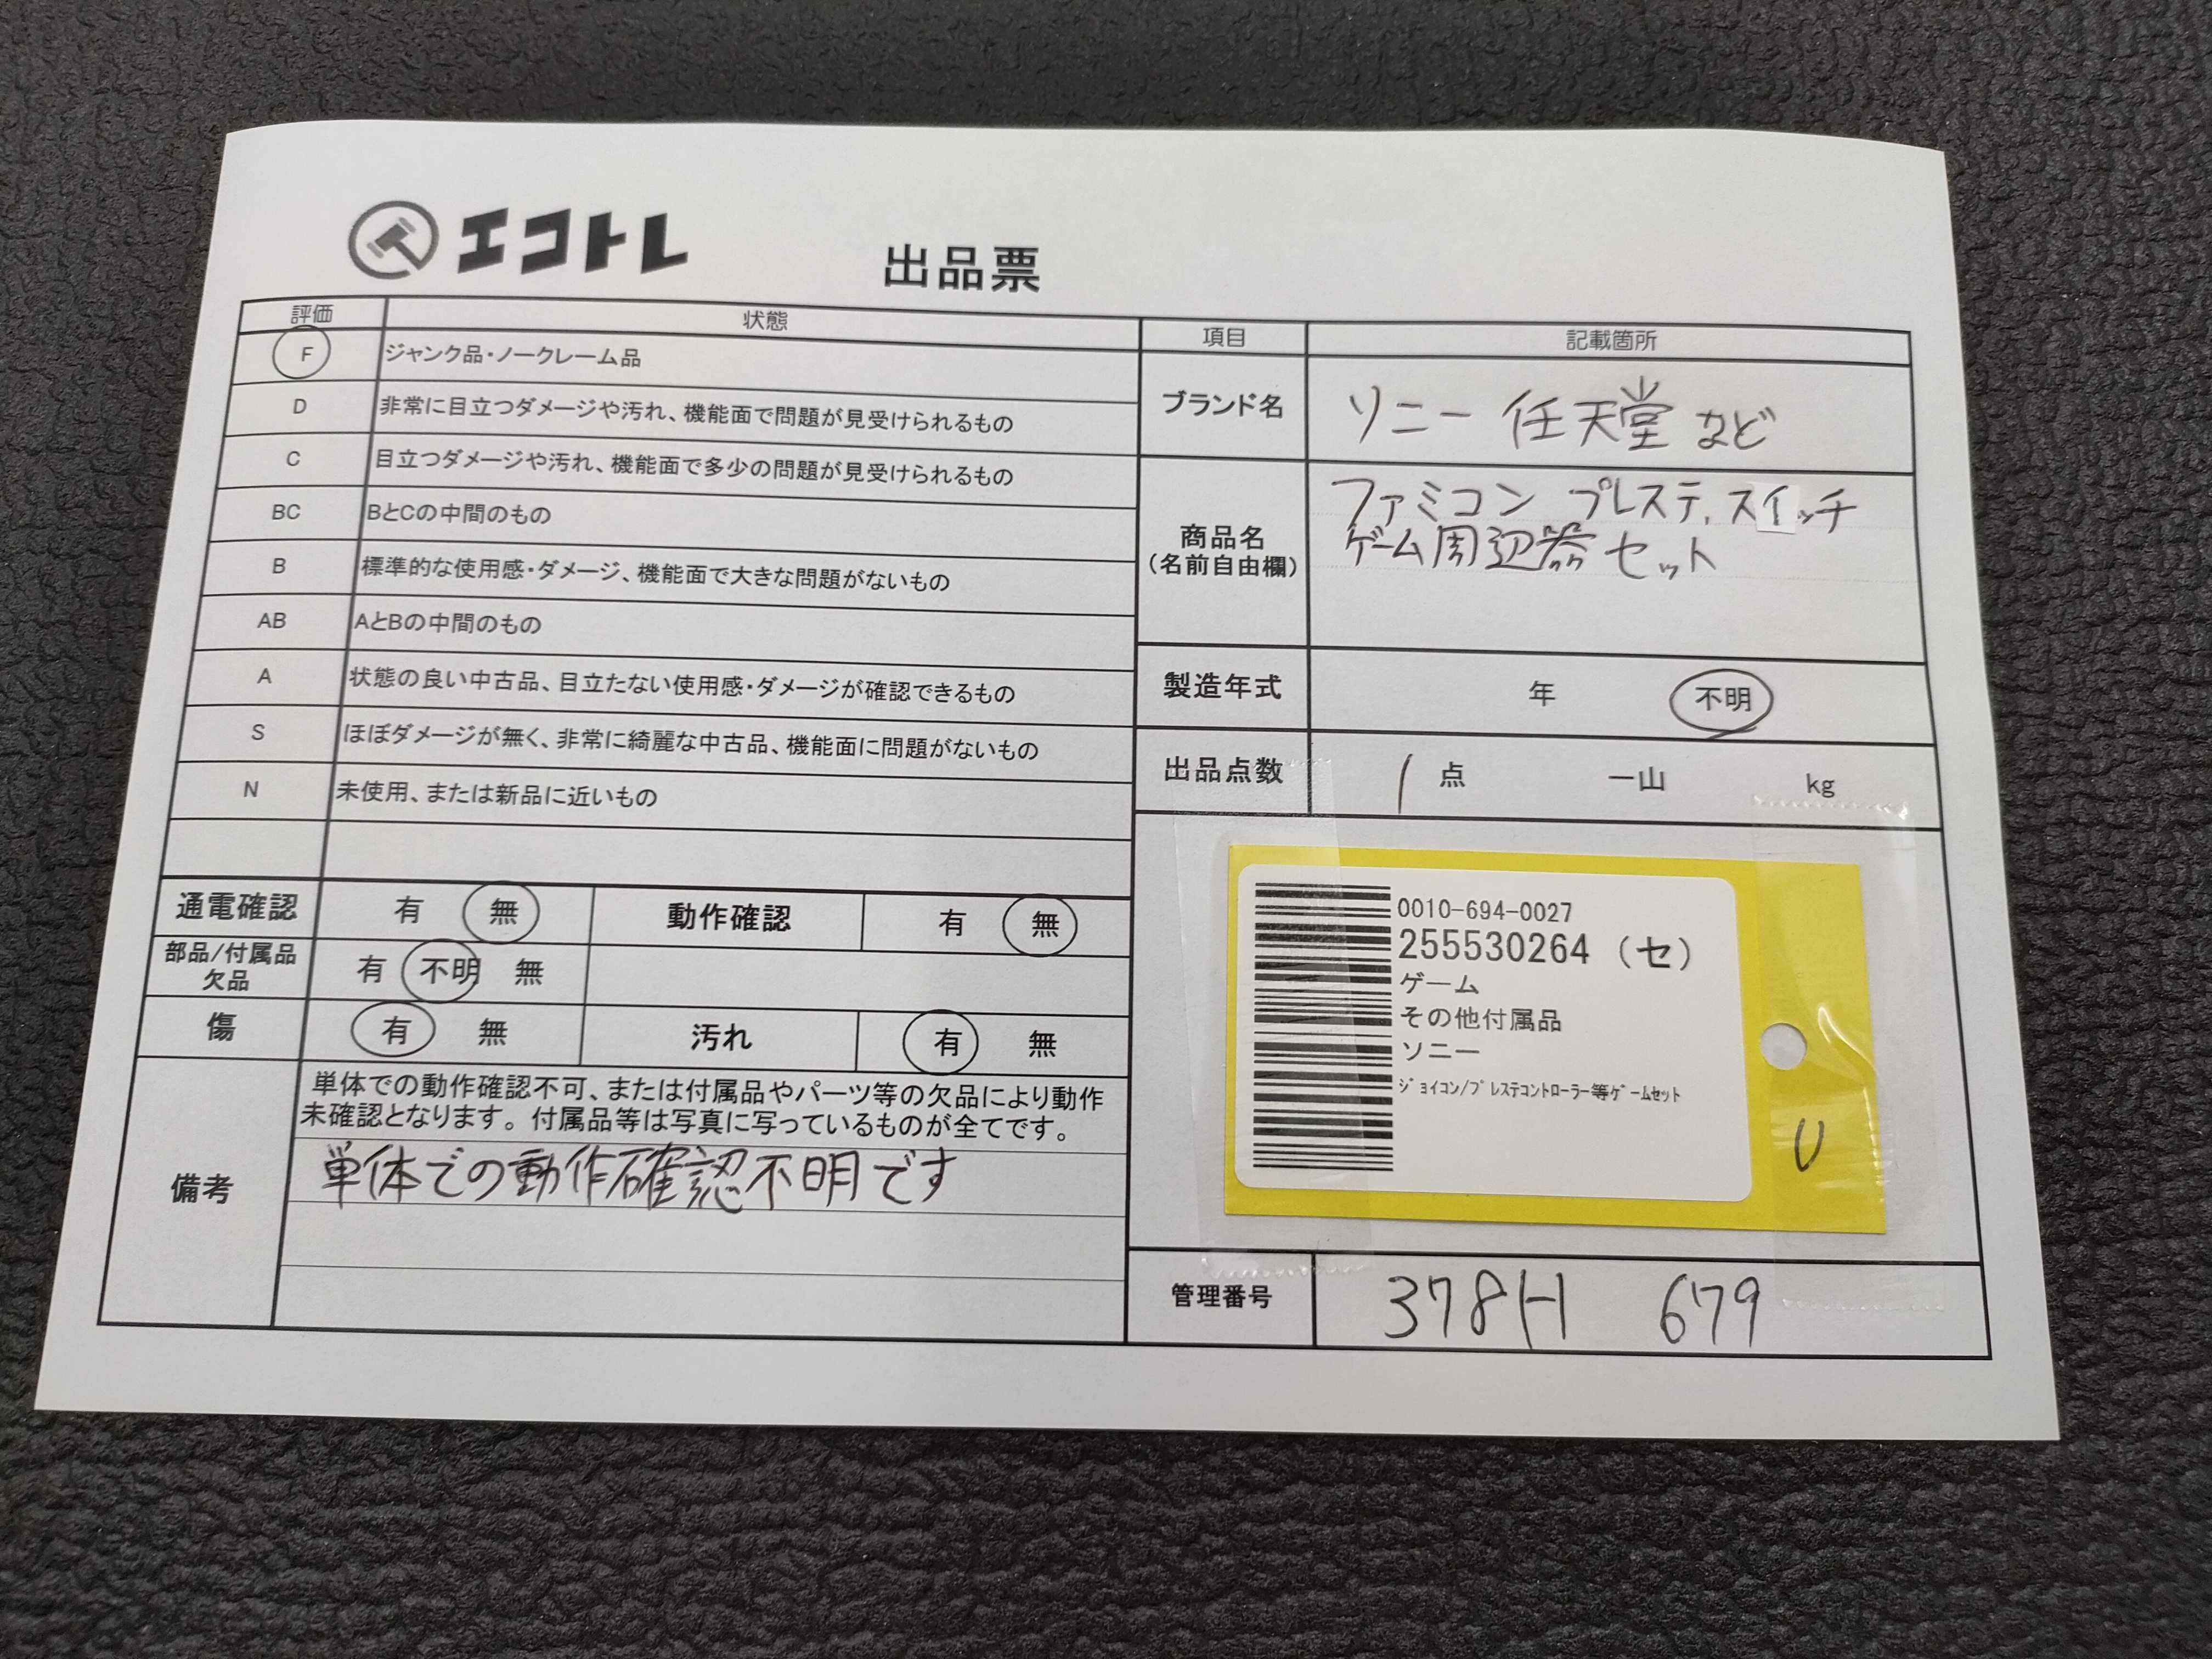 エコトレ
出品票
評価 状態
F ジャンク品・ノークレーム品
D 非常に目立つダメージや汚れ、機能面で問題が見受けられるもの
C 目立つダメージや汚れ、機能面で多少の問題が見受けられるもの
BC BとCの中間のもの
B 標準的な使用感・ダメージ、機能面で大きな問題がないもの
AB AとBの中間のもの
A 状態の良い中古品、目立たない使用感・ダメージが確認できるもの
S ほぼダメージが無く、非常に綺麗な中古品、機能面に問題がないもの
N 未使用、または新品に近いもの
通電確認 有 無 動作確認 有 無
部品/付属品
欠品
有 不明 無
傷 有 無 汚れ 有 無
備考
単体での動作確認不可、または付属品やパーツ等の欠品により動作
未確認となります。付属品等は写真に写っているものが全てです。
単体での動作確認不明です
項目 記載箇所
ブランド名 ソニー 任天堂 など
商品名
(名前自由欄)
ファミコン プレステ、スイッチ
ゲーム周辺器セット
製造年式 年 不明
出品点数 1 点 一山 kg
0010-694-0027
255530264 (セ)
ゲーム
その他付属品
ソニー
ｼﾞｮｲｺﾝ/ﾌﾟﾚｽﾃｺﾝﾄﾛｰﾗｰ等ｹﾞｰﾑｾｯﾄ
U
管理番号 378H 679